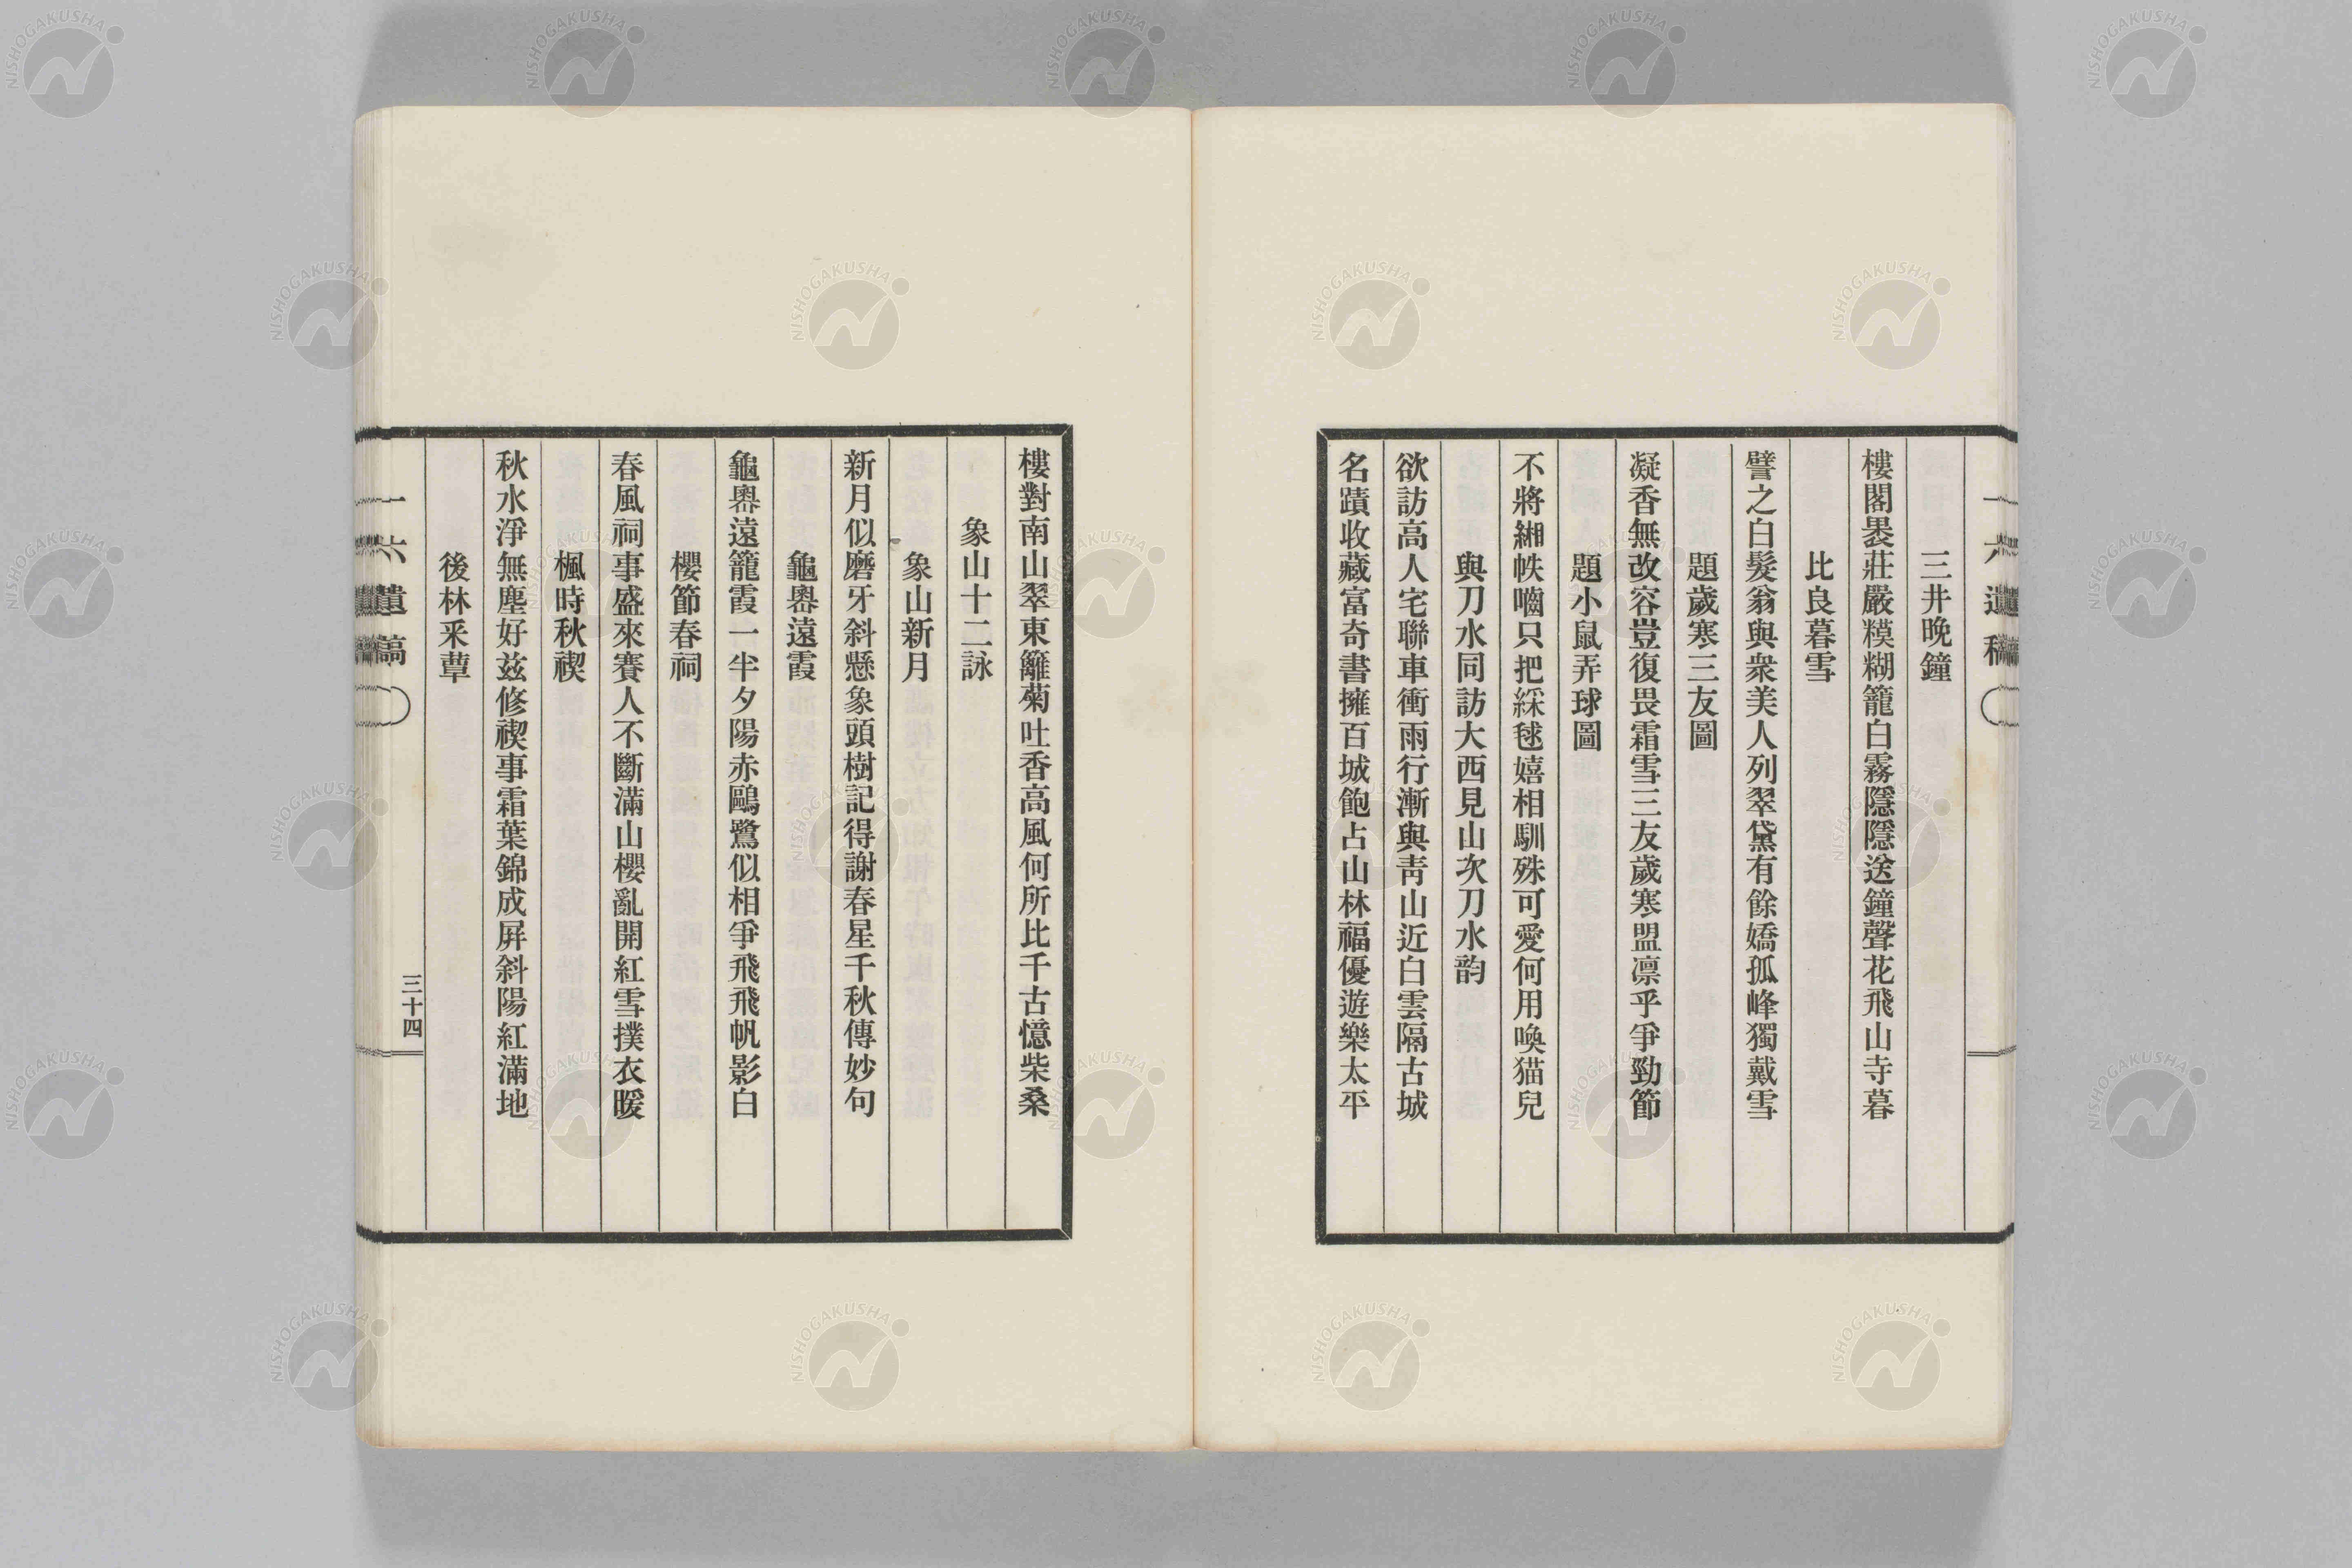 三井晩鐘
樓閣裊莊嚴糢糊籠白霧隱隱送鐘聲花飛山寺暮
比良暮雪
譬之白髮翁與衆美人列翠黛有餘嬌孤峰獨戴雪
題歲寒三友圖
凝香無改容豈復畏霜雪三友歲寒盟凛乎爭勁節
題小鼠弄球圖
不將緗帙嚙只把綵毬嬉相馴殊可愛何用喚猫兒
與刀水同訪大西見山次刀水韵
欲訪高人宅聯車衝雨行漸與靑山近白雲隔古城
名蹟收藏富奇書擁百城飽占山林福優遊樂太平
樓對南山翠東籬菊吐香高風何所比千古憶柴桑
象山十二詠
象山新月
新月似磨牙斜懸象頭樹記得謝春星千秋傳妙句
龜嶴遠霞
龜嶴遠籠霞一半夕陽赤鷗鷺似相爭飛飛帆影白
櫻節春祠
春風祠事盛來賽人不斷滿山櫻亂開紅雪撲衣暖
楓時秋禊
秋水淨無塵好兹修禊事霜葉錦成屛斜陽紅滿地
後林采蕈
一六遺稿
三十四
NISHOGAKUSHA